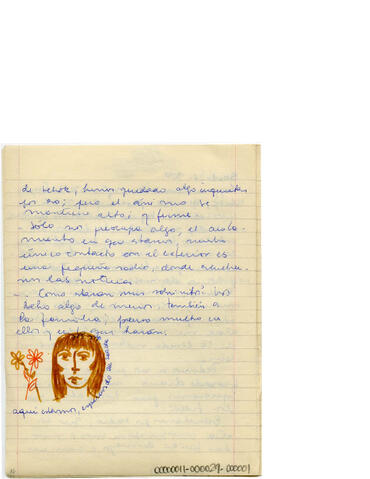 de todo, hemos quedado algo inquietas
por eso; pero el ánimo se
mantiene alto; y firme.
- Sólo nos preocupa algo, el aisla-
miento en que estamos, nuestro
único contacto con el exterior es
una pequeña radio, donde escucha-
mos las noticias.
- Como estaran mis sobrinitos: los
hecho algo de menos, también a
la familia; pienso mucho en
ellos y en que harán.
aquí estamos, esperando
00000011-000029-000001